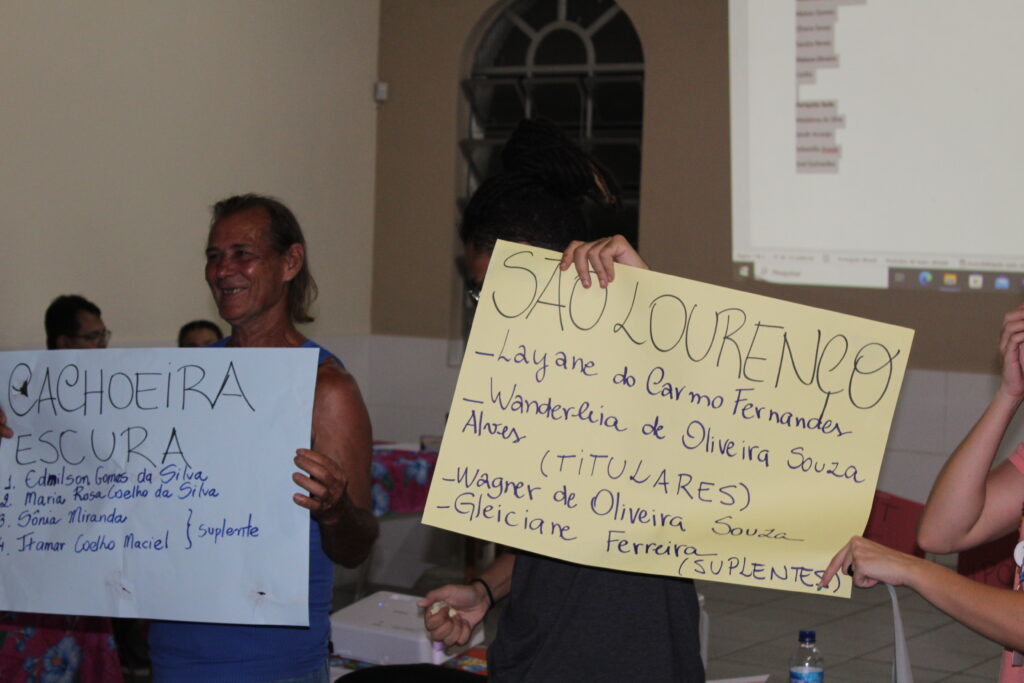 CACHOEIRA
ESCURA
1. Edmilson Gomes da Silva
2. Maria Rosa Coelho da Silva
3. Sônia Miranda
4. Itamar Coelho Maciel } Suplente
SÃO LOURENÇO
- Layane do Carmo Fernandes
- Wanderleia de Oliveira Souza
Alves
(TITULARES)
- Wagner de Oliveira Souza
- Gleiciane Ferreira
(SUPLENTES)
Pesquisar